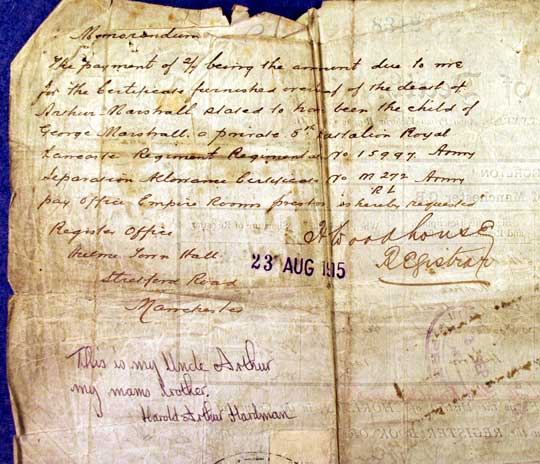 Memorandum
The payment of 2/- being the amount due to me
for the Certificate furnished overleaf of the death of
Arthur Marshall stated to have been the child of
George Marshall a private 8th Battalion Royal
Lancaster Regiment Regimental No 15997. Army
Separation Allowance Certificate No M 272 Army
R L
pay Office Empire Rooms Preston is hereby requested
Register Office
Hulme Town Hall.
Stretford Road
Manchester
H Woodhouse
Registrar
23 AUG 1915
This is my Uncle Arthur
my mams brother.
Harold Arthur Hardman